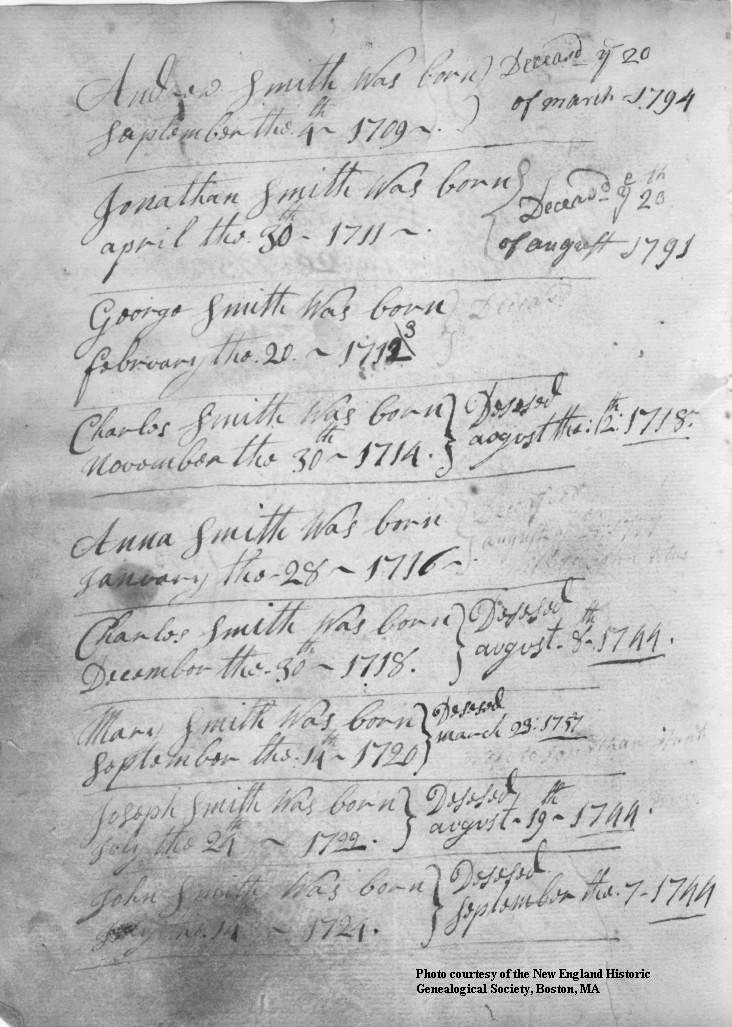 Andrew Smith Was born) Deceasd ye 20
September the. 4th ~ 1709 ~. ) of march 1794
Jonathan Smith Was born} Deceasd ye 20th
april the. 30th ~ 1711 ~. of augusst 1791
George Smith Was born) Deceasd
february the. 20. ~ 17123
Charles Smith Was born} Desesed
November the 30th ~ 1714. } avgvst the: 12th: 1718.
Anna Smith Was born
January the - 28 ~ 1716 ~.
Charles Smith Was born} Desesed
December the. 30th ~ 1718. avgvst - 8th - 1744.
Mary Smith Was born} Desesed
September the. 14th ~ 1720 march 23: 1757
Joseph Smith Was born} Desesed
July the 24th ~ 1722. avgvst - 19th ~ 1744.
John Smith Was born} Desesed
the. 14 ~ 1724. September the. 7 - 1744
Photo courtesy of the New England Historic
Genealogical Society, Boston, MA